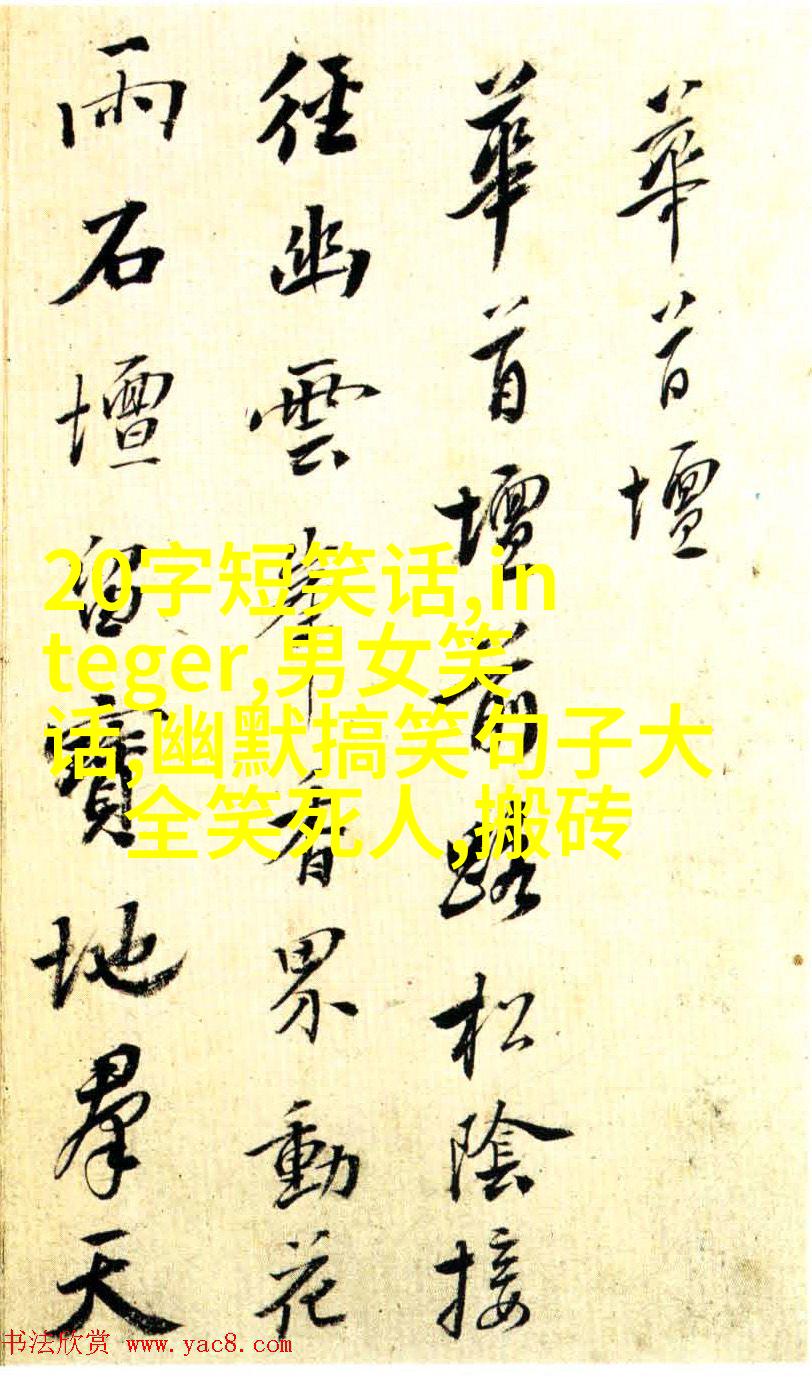 華首壇
華首壇前路松陰接
徑幽雲峯香界動花
雨石壇留寶地羣天
20字短笑话,in
teger,男女笑
话,幽默搞笑句子大
全笑死人,搬砖
书法欣赏 www.yac8.com